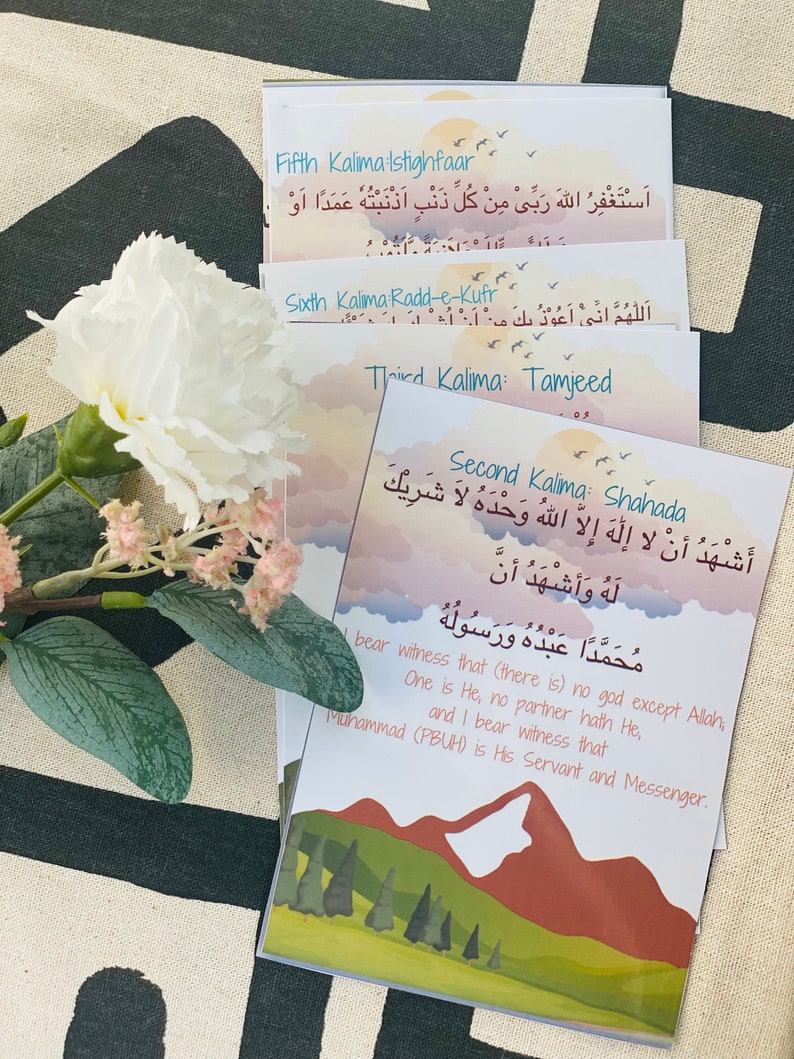 Fifth Kalima:Istighfaar
اَسْتَغْفِرُ اللهَ رَبِّىْ مِنْ كُلِّ ذَنْۢبٍ اَذْنَبْتُهٗ عَمَدًا اَوْ
Sixth Kalima:Radd-e-Kufr
اَللّٰهُمَّ اِنِّىْٓ اَعُوْذُ بِكَ مِنْ اَنْ
Third Kalima: Tamjeed
Second Kalima: Shahada
أَشْهَدُ أنْ لا إلَٰهَ إلاَّ اللهُ وَحْدَهُ لاَ شَرِيْكَ
لَهُ وَأشْهَدُ أنَّ
مُحَمَّدًا عَبْدُهُ وَرَسُولُهُ
I bear witness that (there is) no god except Allah;
One is He, no partner hath He,
and I bear witness that
Muhammad (PBUH) is His Servant and Messenger.